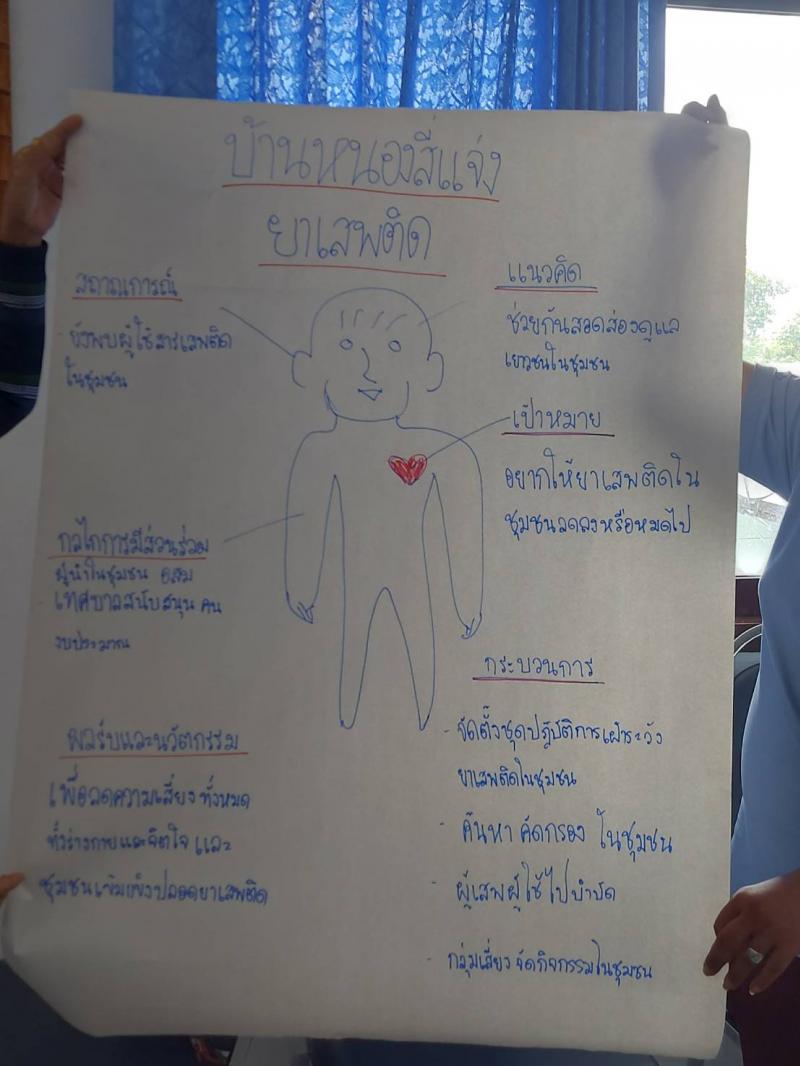 บ้านหนองสี่แจ่ง
ยาเสพติด
สถาณการณ์
- ยังพบผู้ใช้สารเสพติด
ในชุมชน
แนวคิด
ช่วยกันสอดส่องดูแล
เยาวชนในชุมชน
เป้าหมาย
อยากให้ยาเสพติดใน
ชุมชนลดลงหรือหมดไป
กลไกการมีส่วนร่วม
ผู้นำในชุมชน อสม
เทศบาลสนับสนุน คน
งบประมาณ
ผลรับและนวัตกรรม
เพื่อลดความเสี่ยง ทั้งหมด
ทั้งร่างกายและจิตใจ และ
ชุมชนเข้มแข็งปลอดยาเสพติด
กระบวนการ
- จัดตั้งชุดปฎิบัติการเฝ้าระวัง
ยาเสพติดในชุมชน
- ค้นหา คัดกรอง ในชุมชน
- ผู้เสพผู้ใช้ไปบำบัด
- กลุ่มเสี่ยง จัดกิจกรรมในชุมชน